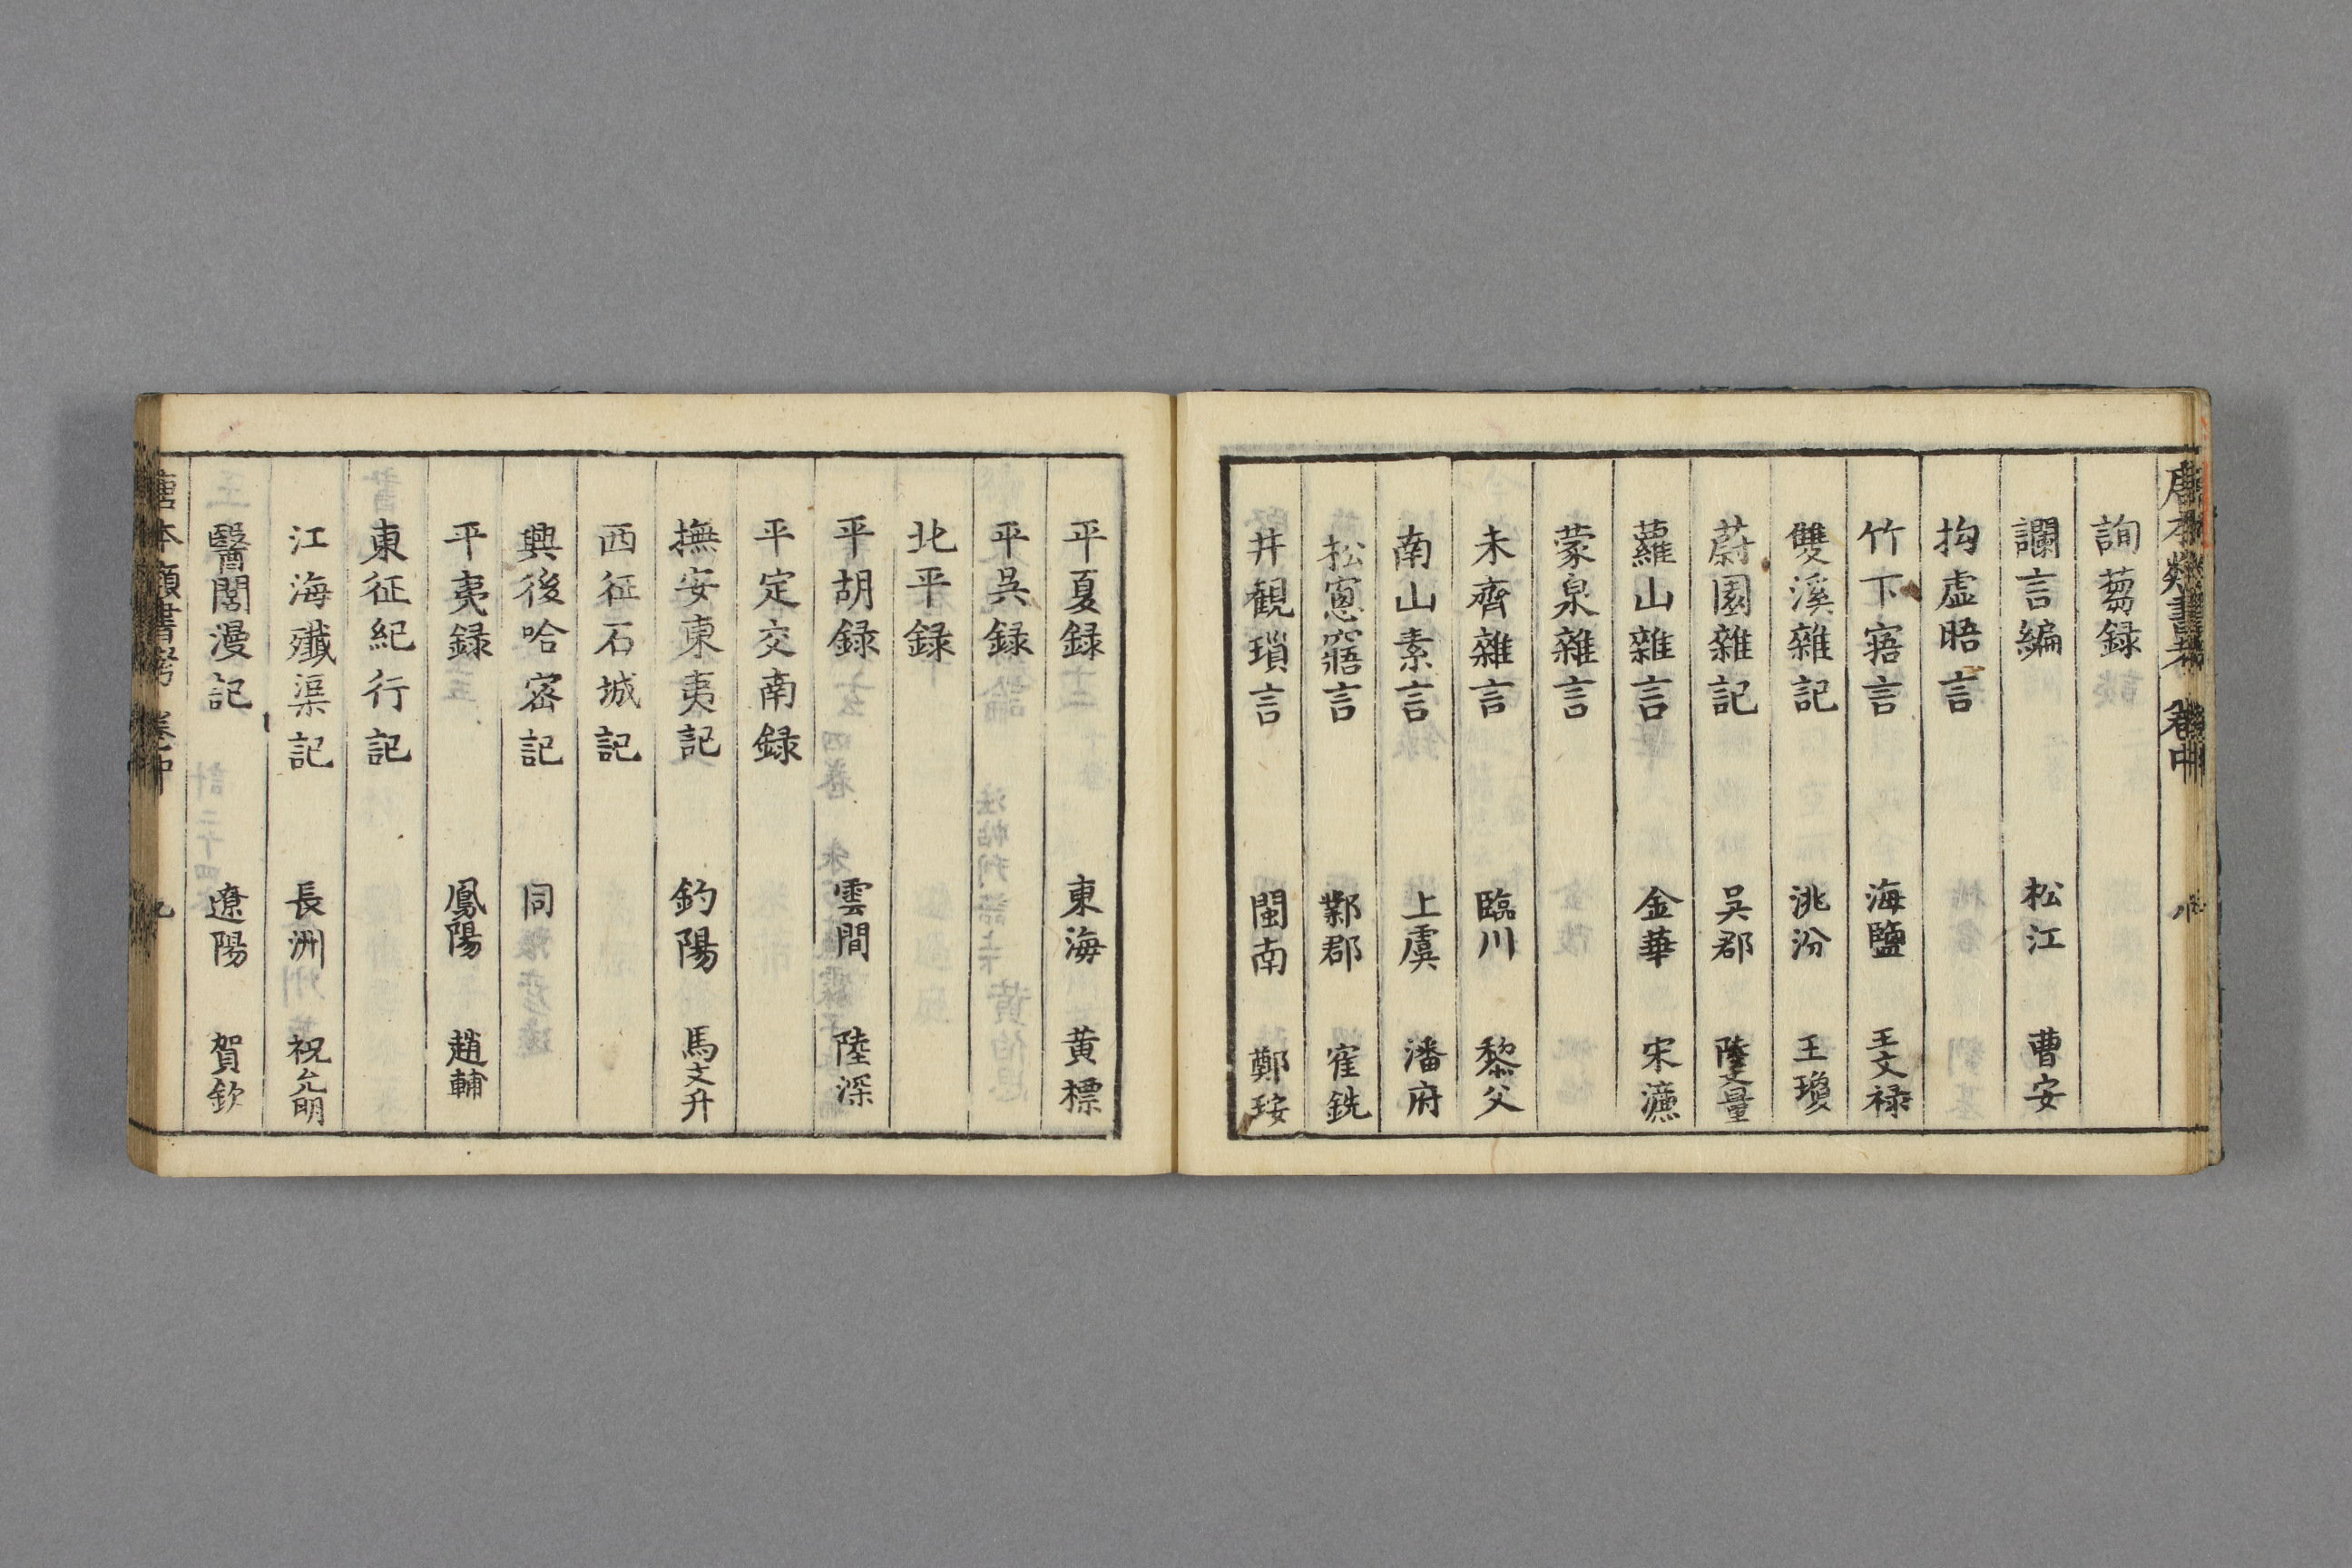 唐本類書考 卷中 八
詢蒭録
讕言編 松江 曹安
拘虚晤言
竹下寤言 海鹽 王文禄
雙溪雜記 洮汾 王瓊
蔚園雜記 吳郡 陸文量
蘿山雜言 金華 宋濂
蒙泉雜言
未齊雜言 臨川 黎父
南山素言 上虞 潘府
松窻寤言 鄴郡 崔銑
井観瑣言 閩南 鄭瑗
平夏録 東海 黄標
平吳録
北平録
平胡録 雲間 陸深
平定交南録
撫安東夷記 鈞陽 馬文升
西征石城記
興後哈密記 同
平夷録 鳳陽 趙輔
東征紀行記
江海殱渠記 長洲 祝允明
醫閭漫記 遼陽 賀欽
唐本類書考 卷中 九